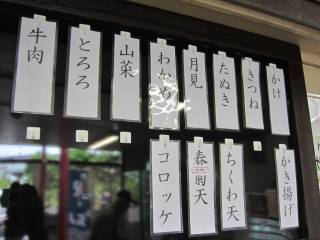 かけ
きつね
たぬき
月見
わかめ
山菜
とろろ
牛肉
かき揚げ
ちくわ天
春菊天
コロッケ